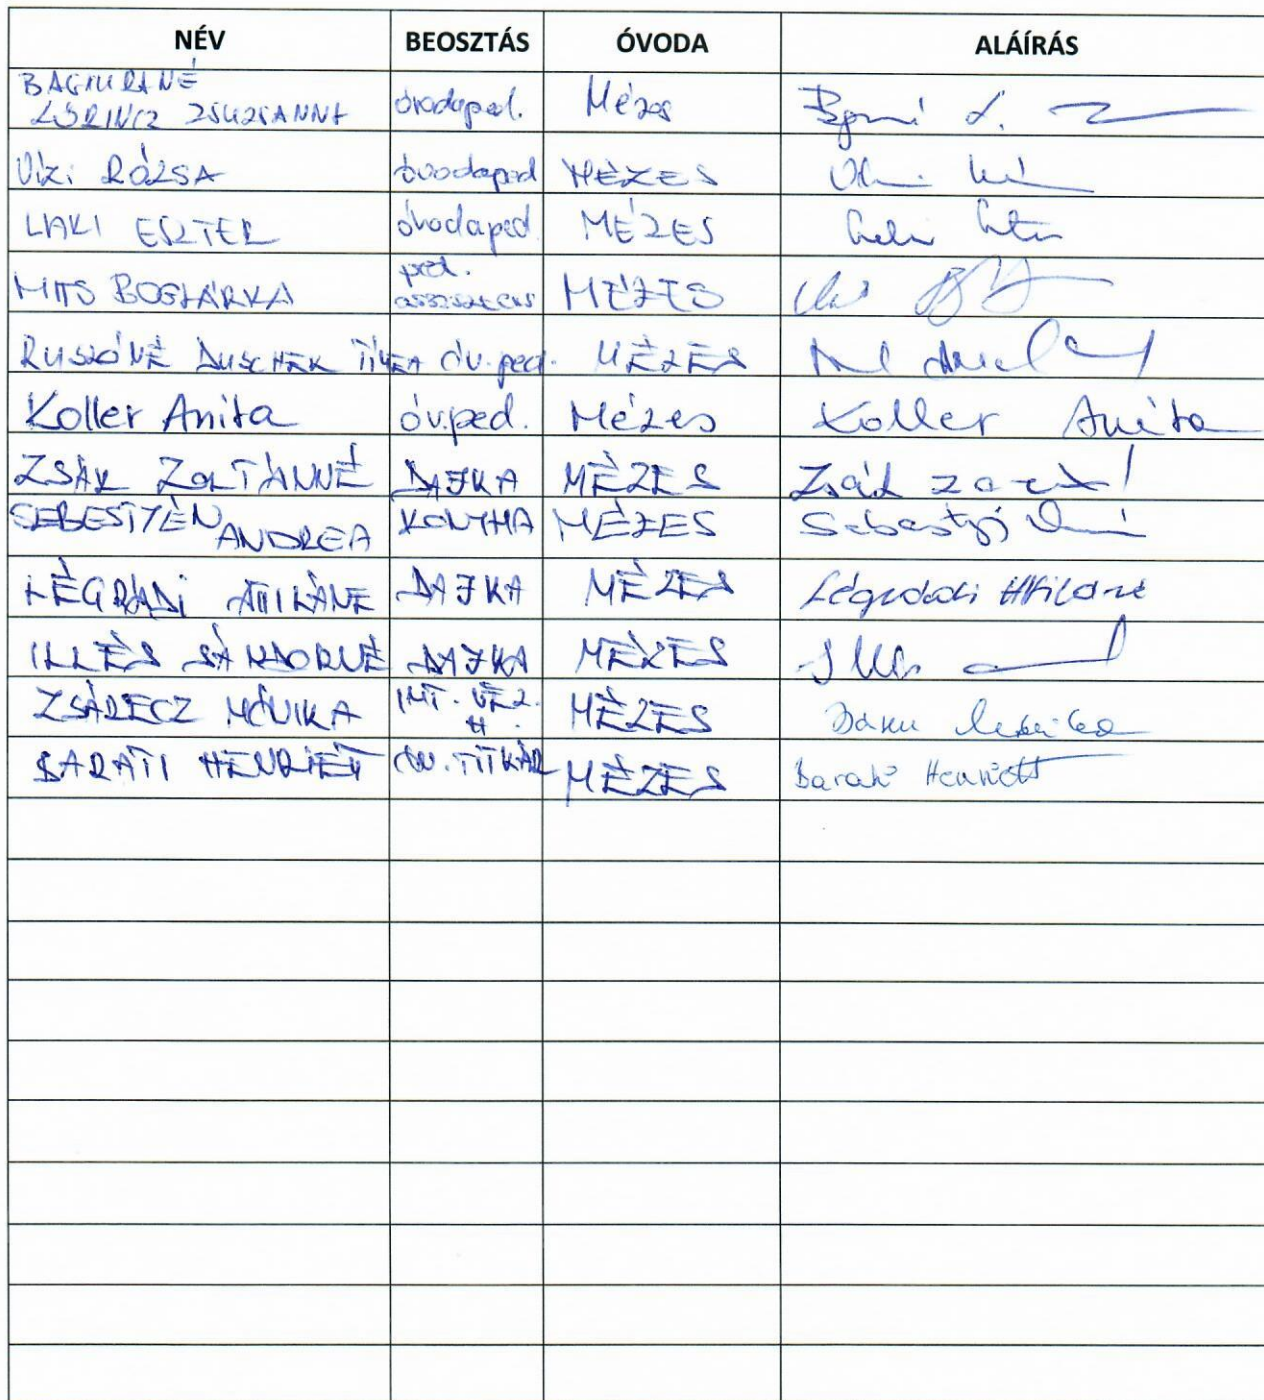 NÉV BEOSZTÁS ÓVODA ALÁÍRÁS
LŐRINCZ ZSUZSANNA óvodaped. Mézes
Vizi RÓZSA óvodaped MÉZES
LAKI ESZTER óvodaped. MÉZES
ped.
MITS BOGLÁRKA asszisztens MÉZES
RUSZÓNÉ DUSCHEK TÍMEA ÓV.ped. MÉZES
Koller Anita óv.ped. Mézes Koller Anita
ZSÁK ZOLTÁNNÉ DAJKA MÉZES Zsák
SEBESTYÉN KONYHA MÉZES
ANDREA
LÉGRÁDI ATTILÁNÉ DAJKA MÉZES Légrádi Attiláné
ILLÉS SÁNDORNÉ DAJKA MÉZES
ZSÁRECZ MÓNIKA INT. VEZ. MÉZES
H.
BARÁTI HENRIETT ÓV. TITKÁR MÉZES Baráti Henriett